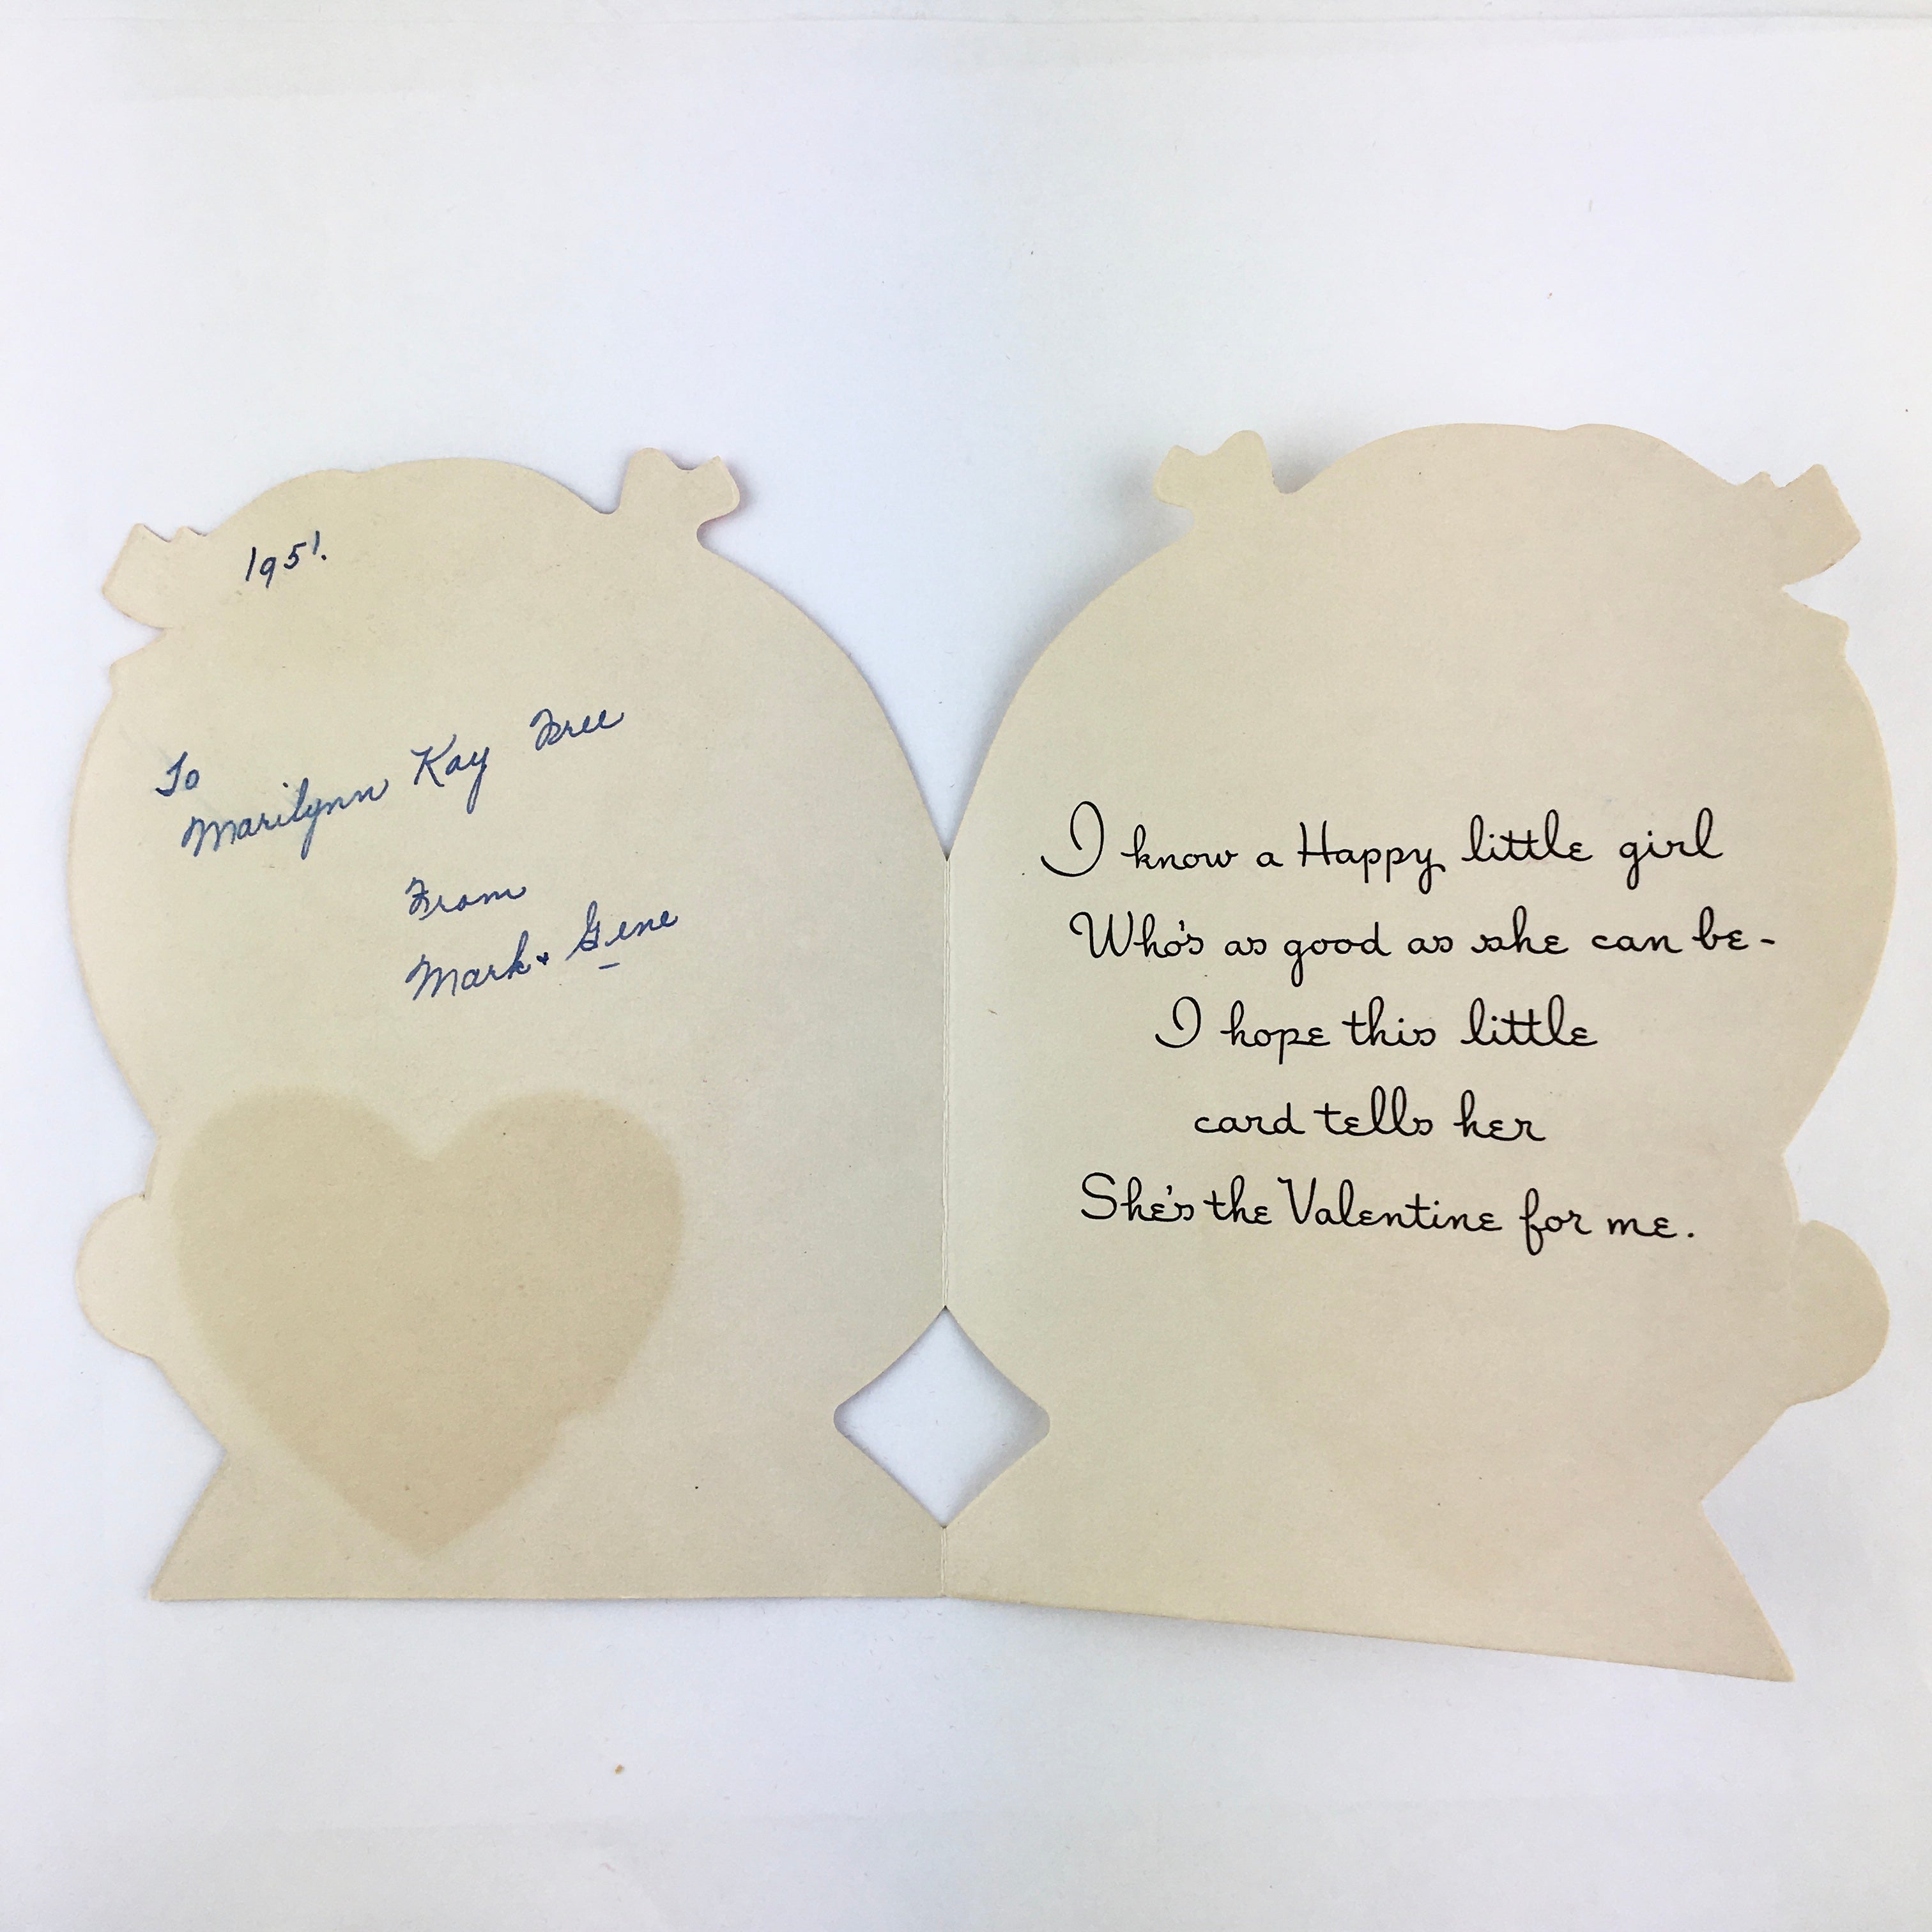 1951.
To
Marilynn Kay Free
From
Mark & Gene
I know a Happy little girl
Who's as good as she can be-
I hope this little
card tells her
She's the Valentine for me.